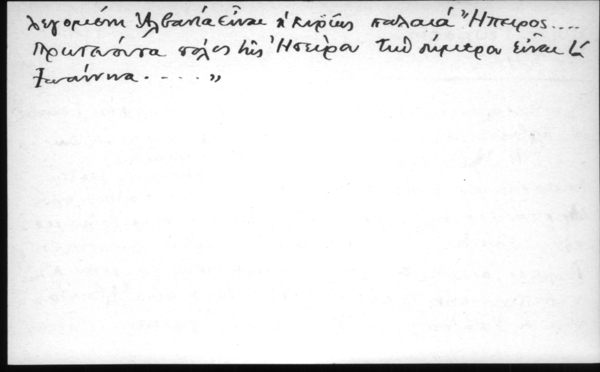 λεγομένη Ἀλβανία εἶναι ἡ κυρίως παλαιά Ἤπειρος....
Πρωτεύουσα πόλις τῆς Ἠπείρου τήν σήμερον εἶναι τά
Ἰωάννινα.....»